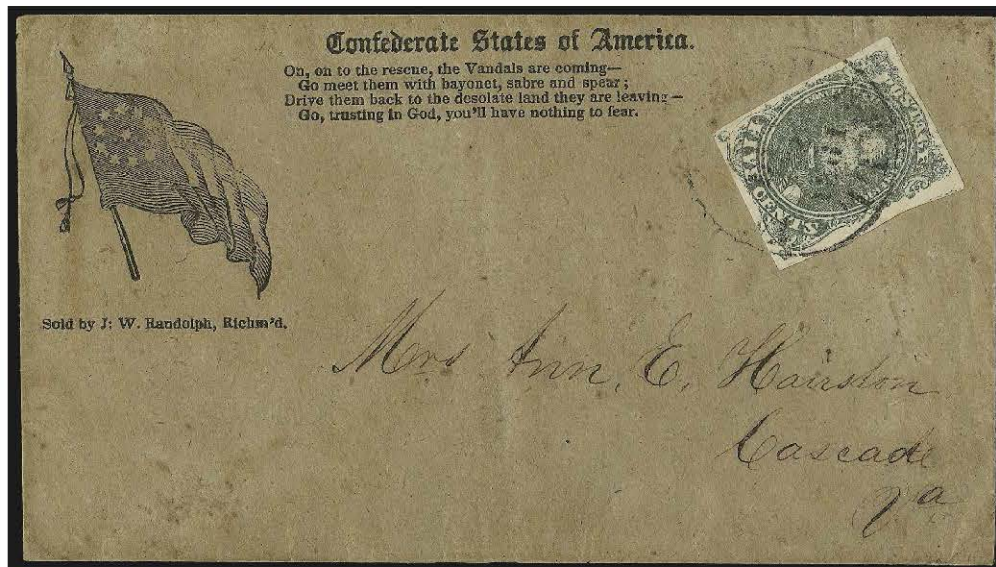 Confederate States of America.
On, on to the rescue, the Vandals are coming—
Go meet them with bayonet, sabre and spear;
Drive them back to the desolate land they are leaving—
Go, trusting in God, you'll have nothing to fear.
FIVE CENTS
Sold by J: W. Randolph, Richm'd.
Mrs Ann. E. Hairston
Cascade
Va